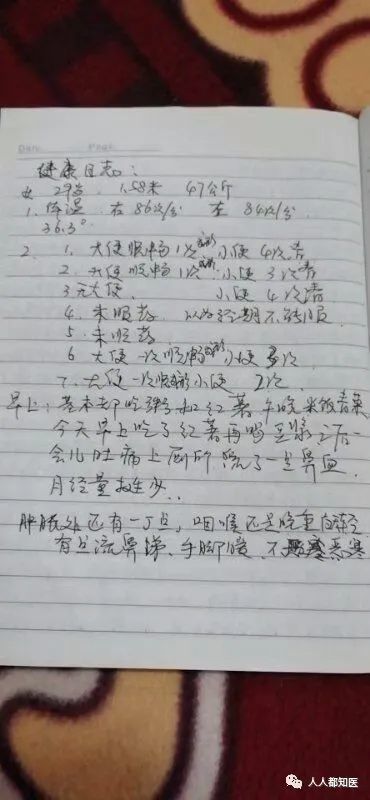 健康日志：
女 29岁 1.58米 47公斤
1. 体温 右86次/分 左84次/分
36.3°
2. 1. 大便顺畅1次成形 小便4次清
2. 大便顺畅1次成形 小便3次清
3 无大便 小便4次清
4. 未服药 以为经期不能服
5. 未服药
6 大便一次顺畅成形 小便多次
7. 大便一次顺成形小便 2次
早上：基本都吃 和红薯 午晚米饭青菜
今天早上吃了红薯再喝豆浆之后一
会儿肚痛上厕所 流了一点鼻血
月经量 少..
肿胀处还有一丁点，咽喉还是晚重白轻
有点流鼻涕、手脚暖、不 恶寒
人人都知医